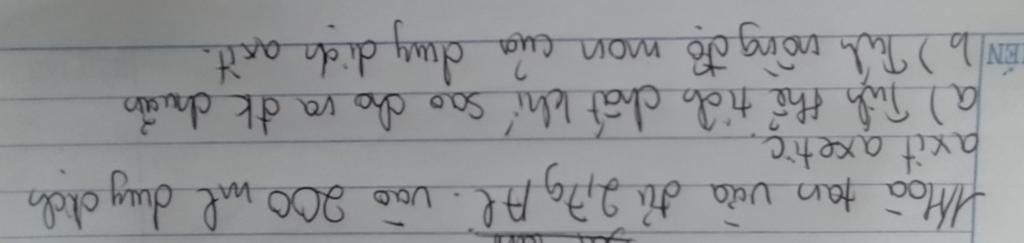 Hòa tan vừa đủ 2,7g Al vào 200 ml dung dịch
axit axetic.
a) Tính thể tích chất khí sao cho va đk chuẩn
b) Tính nồng độ mon của dung dịch axit.
ÊN